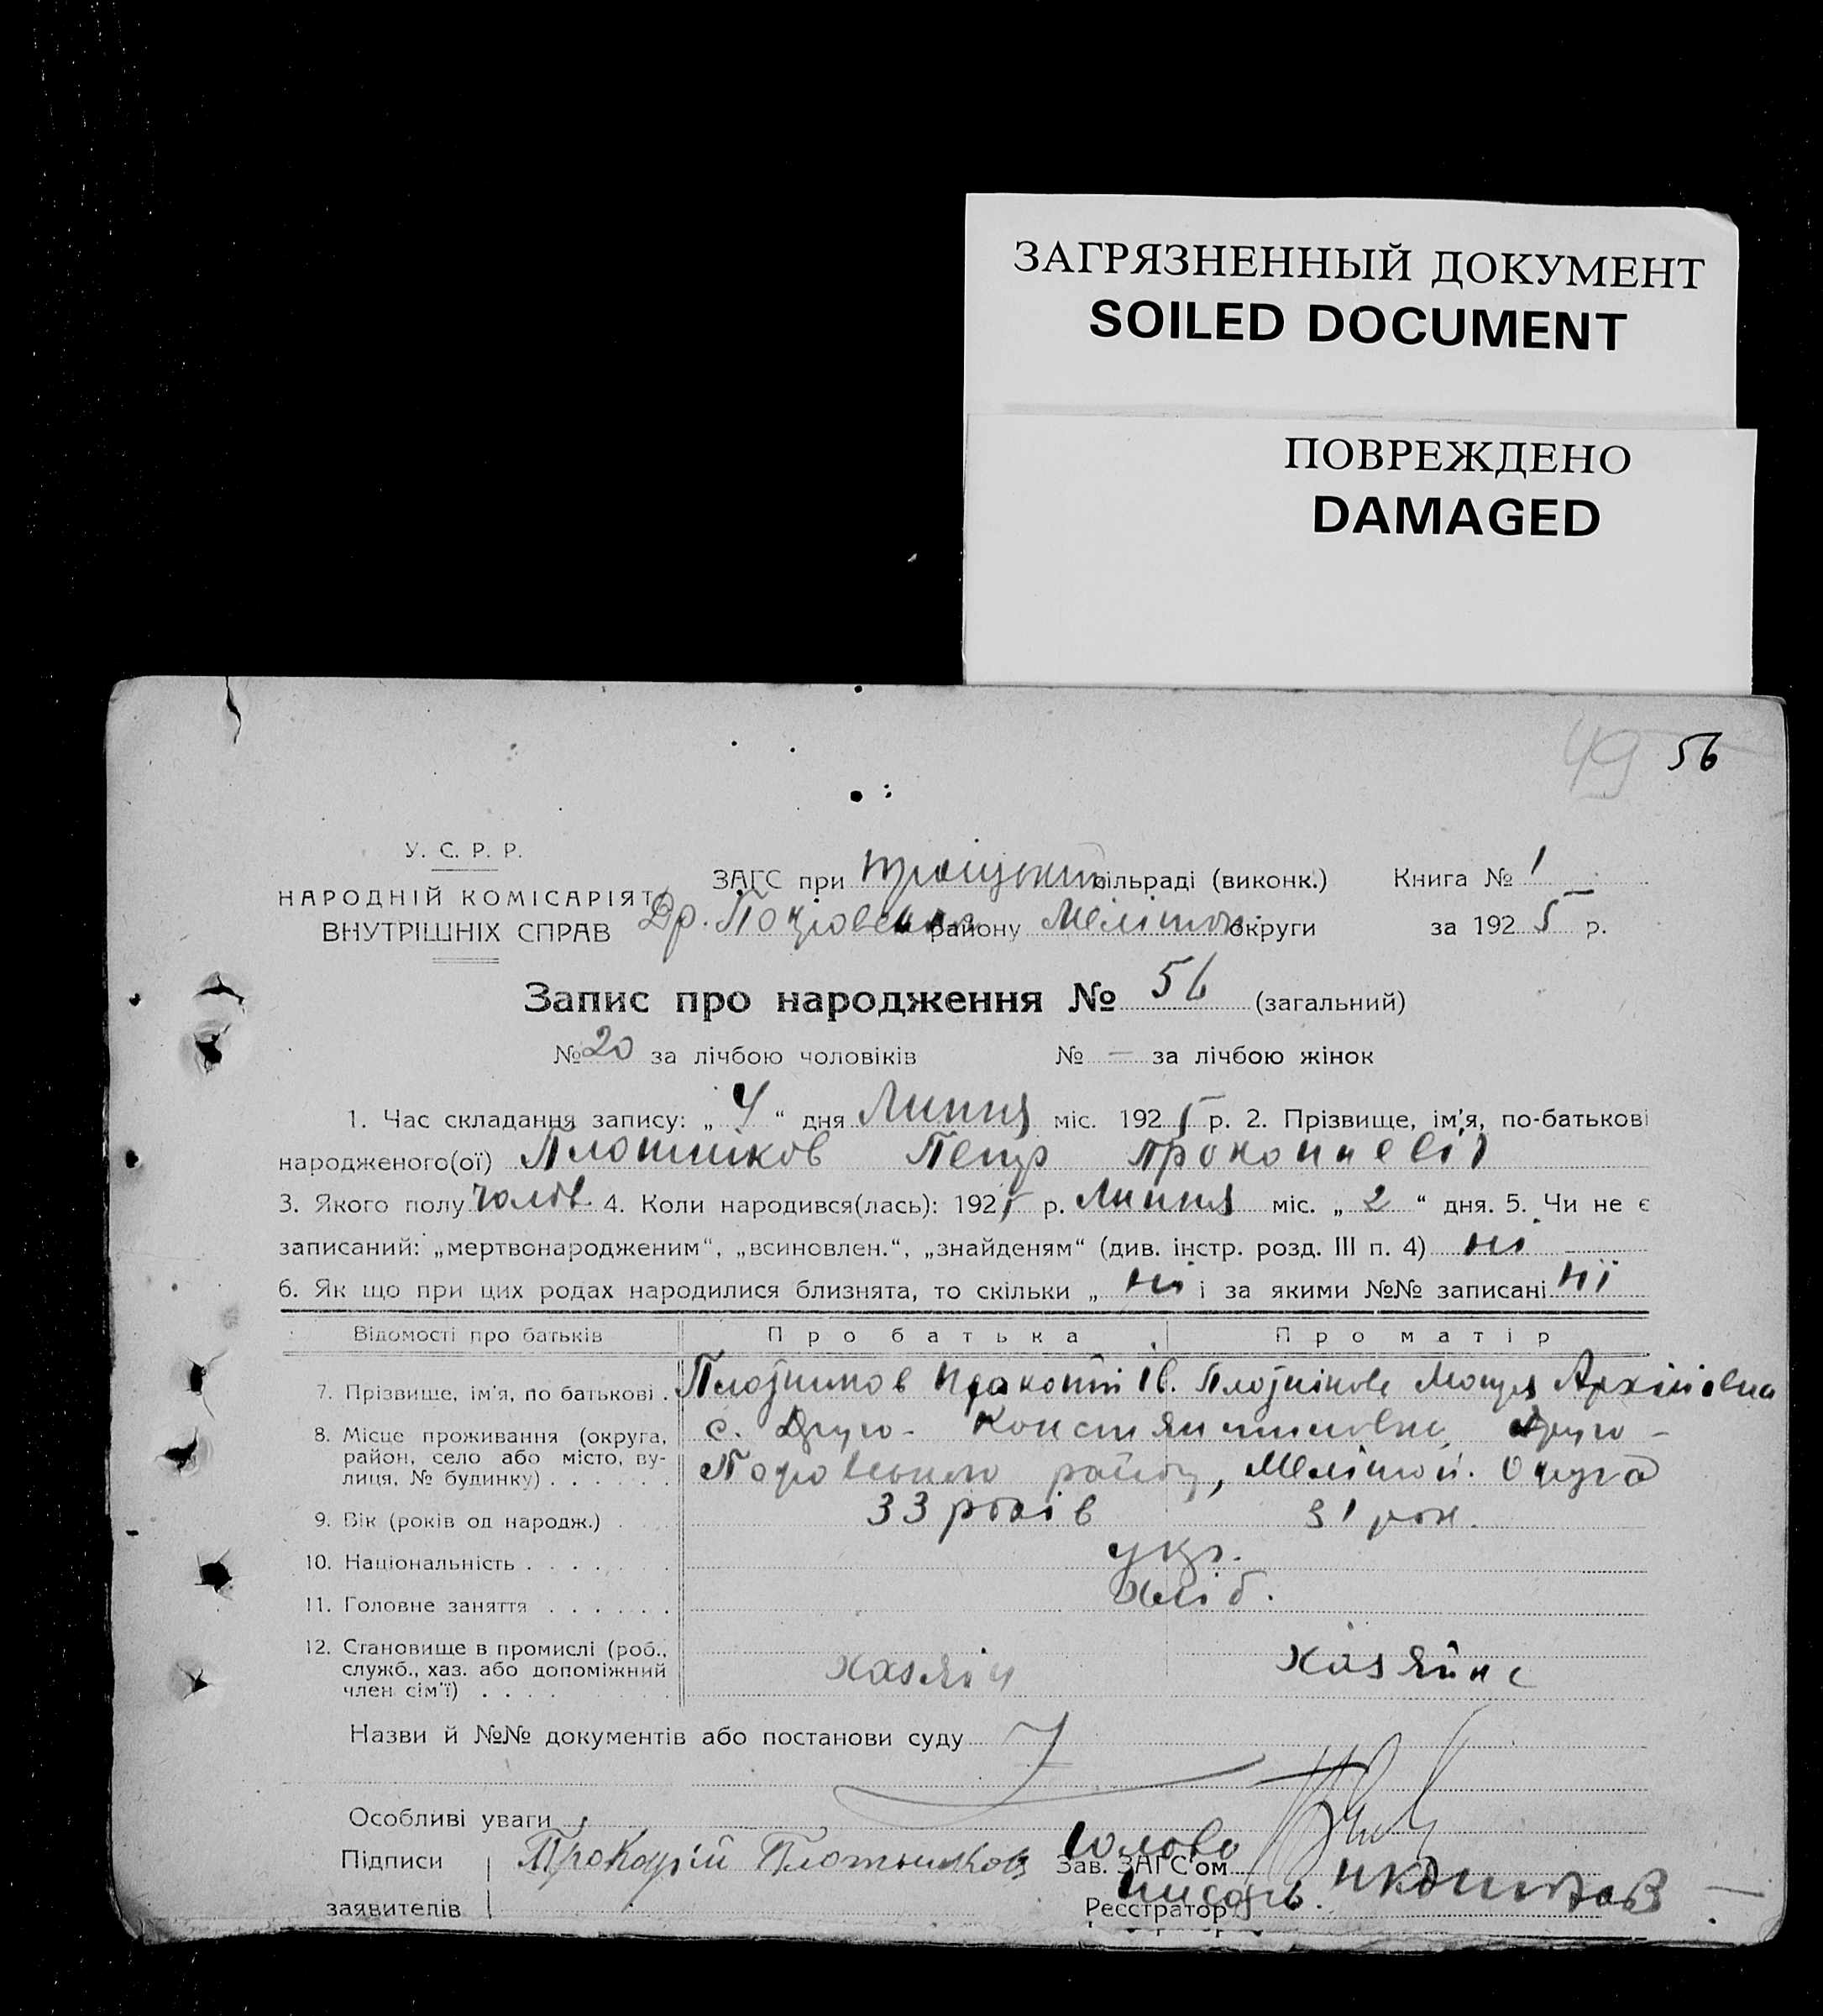 ЗАГРЯЗНЕННЫЙ ДОКУМЕНТ
SOILED DOCUMENT
ПОВРЕЖДЕНО
DAMAGED
49 56
У. С. Р. Р.
НАРОДНІЙ КОМІСАРІЯТ
ВНУТРІШНІХ СПРАВ
ЗАГС при сільраді (виконк.) Книга № 1
Др. району Мелітоп. округи за 1925 р.
Запис про народження № 56 (загальний)
№ 20 за лічбою чоловіків № — за лічбою жінок
1. Час складання запису: „ 4 “ дня Липня міс. 1925 р. 2. Прізвище, ім’я, по-батькові
народженого(ої) Плотніков Петр
3. Якого полу чолов. 4. Коли народився(лась): 1925 р. Липня міс. „ 2 “ дня. 5. Чи не є
записаний: „мертвонародженим“, „всиновлен.“, „знайденям“ (див. інстр. розд. III п. 4) ні
6. Як що при цих родах народилися близнята, то скільки „ ні і за якими №№ записані ні
Відомості про батьків Про батька Про матір
7. Прізвище, ім’я, по батькові . Плотников Ів. Плотнікова Архипівна
8. Місце проживання (округа, с. Друго- Константиновка, Друго-
район, село або місто, ву-
лиця, № будинку) . . . . . . району, Мелітоп. Округа
9. Вік (років од народж.) . 33 років 31 рок.
10. Національність . . . . . . укр.
11. Головне заняття . . . . . . хліб.
12. Становище в промислі (роб.,
служб., хаз. або допоміжний хазяін хазяйка
член сім’ї) . . . .
Назви й №№ документів або постанови суду
Особливі уваги
Підписи Прокофій Плотников Голова
Зав. ЗАГС’ом
заявителів писарь.
Реєстратор